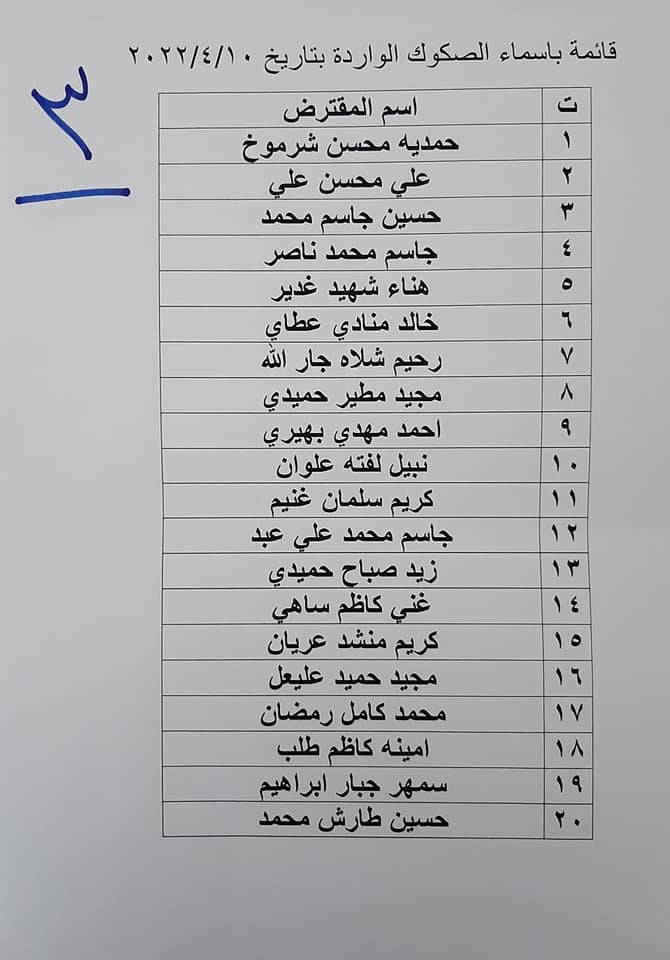 قائمة باسماء الصكوك الواردة بتاريخ ٢٠٢٢/٤/١٠
٣
ت اسم المقترض
١ حمديه محسن شرموخ
٢ علي محسن علي
٣ حسين جاسم محمد
٤ جاسم محمد ناصر
٥ هناء شهيد غدير
٦ خالد منادي عطاي
٧ رحيم شلاه جار الله
٨ مجيد مطير حميدي
٩ احمد مهدي بهيري
١٠ نبيل لفته علوان
١١ كريم سلمان غنيم
١٢ جاسم محمد علي عبد
١٣ زيد صباح حميدي
١٤ غني كاظم ساهي
١٥ كريم منشد عريان
١٦ مجيد حميد عليعل
١٧ محمد كامل رمضان
١٨ امينه كاظم طلب
١٩ سمهر جبار ابراهيم
٢٠ حسين طارش محمد